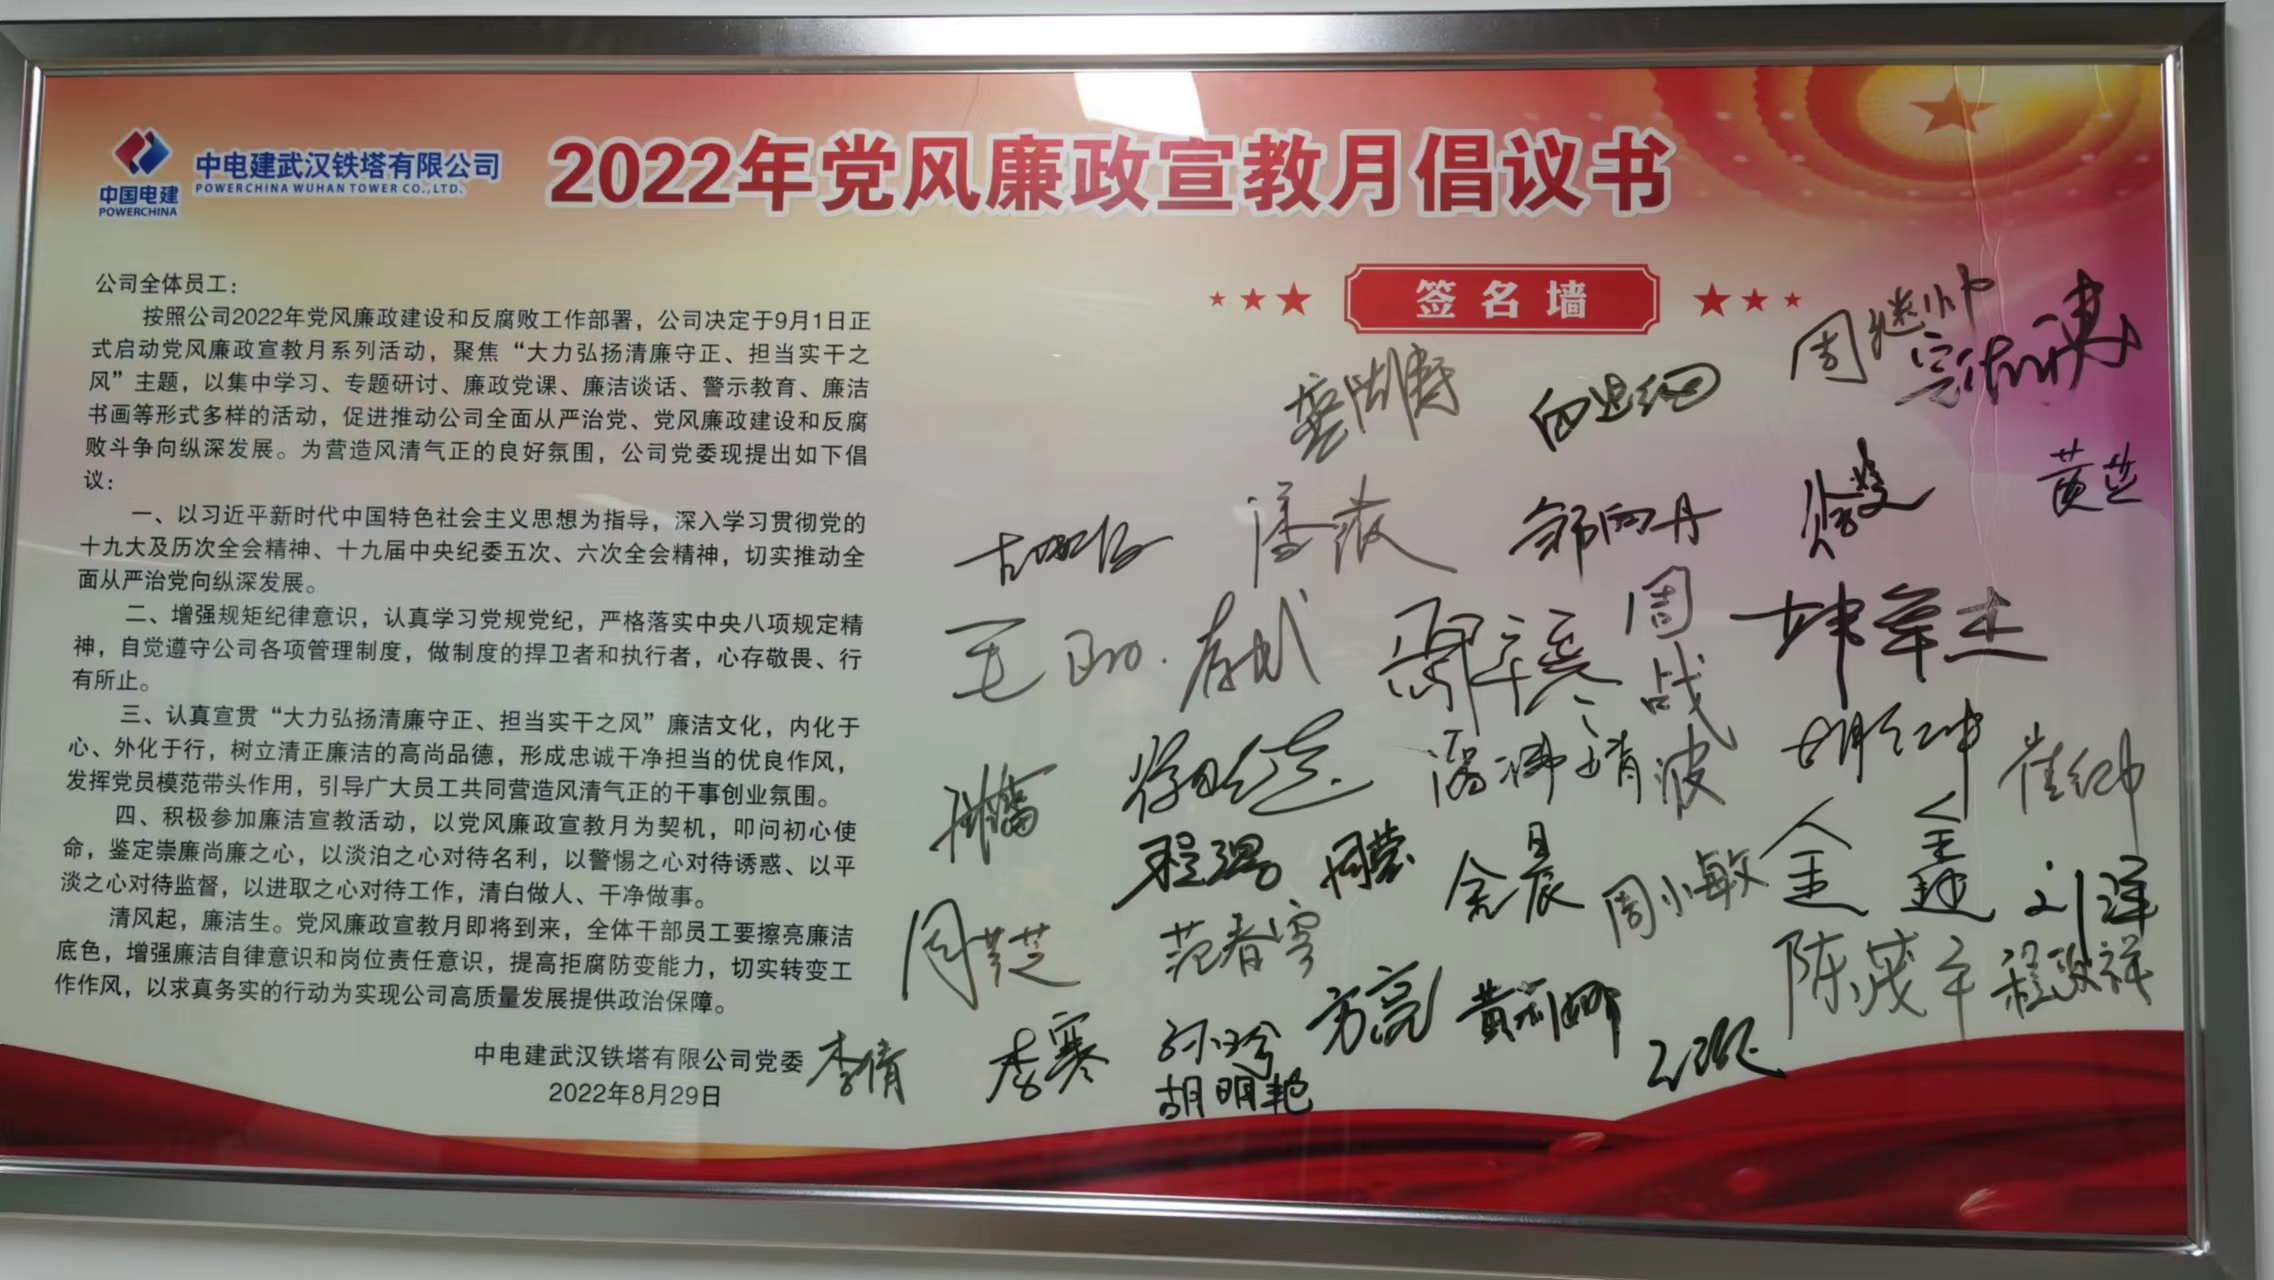 中国电建
POWERCHINA
中电建武汉铁塔有限公司
POWERCHINA WUHAN TOWER CO.,LTD.
2022年党风廉政宣教月倡议书
公司全体员工：
按照公司2022年党风廉政建设和反腐败工作部署，公司决定于9月1日正
式启动党风廉政宣教月系列活动，聚焦“大力弘扬清廉守正、担当实干之
风”主题，以集中学习、专题研讨、廉政党课、廉洁谈话、警示教育、廉洁
书画等形式多样的活动，促进推动公司全面从严治党、党风廉政建设和反腐
败斗争向纵深发展。为营造风清气正的良好氛围，公司党委现提出如下倡
议：
一、以习近平新时代中国特色社会主义思想为指导，深入学习贯彻党的
十九大及历次全会精神、十九届中央纪委五次、六次全会精神，切实推动全
面从严治党向纵深发展。
二、增强规矩纪律意识，认真学习党规党纪，严格落实中央八项规定精
神，自觉遵守公司各项管理制度，做制度的捍卫者和执行者，心存敬畏、行
有所止。
三、认真宣贯“大力弘扬清廉守正、担当实干之风”廉洁文化，内化于
心、外化于行，树立清正廉洁的高尚品德，形成忠诚干净担当的优良作风，
发挥党员模范带头作用，引导广大员工共同营造风清气正的干事创业氛围。
四、积极参加廉洁宣教活动，以党风廉政宣教月为契机，叩问初心使
命，鉴定崇廉尚廉之心，以淡泊之心对待名利，以警惕之心对待诱惑、以平
淡之心对待监督，以进取之心对待工作，清白做人、干净做事。
清风起，廉洁生。党风廉政宣教月即将到来，全体干部员工要擦亮廉洁
底色，增强廉洁自律意识和岗位责任意识，提高拒腐防变能力，切实转变工
作作风，以求真务实的行动为实现公司高质量发展提供政治保障。
中电建武汉铁塔有限公司党委
2022年8月29日
签名墙
黄芷
周战波
胡红坤
崔红帅
程强
余晨
周小敏
刘洋
范春雪
陈茂年
方亮
黄利娜
李倩
李寒
孙玲
胡明艳